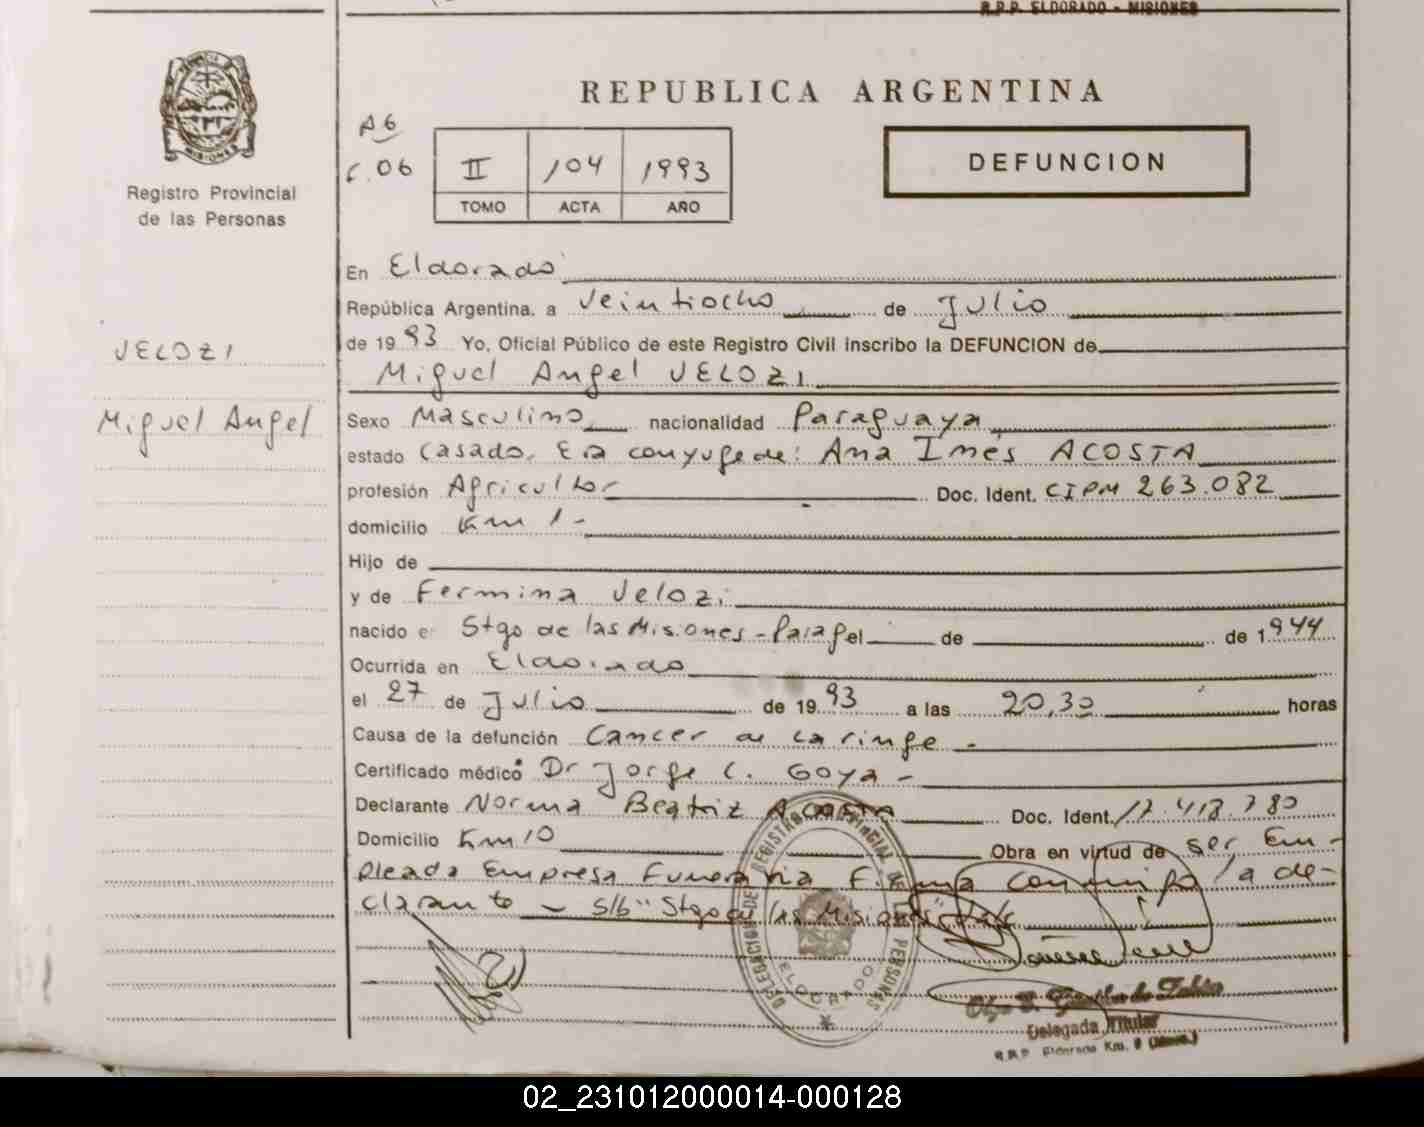 R.P.P. ELDORADO - MISIONES
REPUBLICA ARGENTINA
A6
F. 06
II 104 1993
TOMO ACTA AÑO
DEFUNCION
MISIONES
Registro Provincial
de las Personas
VELOZI
Miguel Angel
En Eldorado
República Argentina, a veintiocho de Julio
de 1993 Yo, Oficial Público de este Registro Civil inscribo la DEFUNCION de
Miguel Angel VELOZI
Sexo Masculino nacionalidad Paraguaya
estado casado, Era conyuge de: Ana Ines ACOSTA
profesión Agricultor Doc. Ident. CIPM 263.082
domicilio Km 1-
Hijo de
y de Fermina Velozi
nacido e Stgo de las Misiones - Parag el de de 1944
Ocurrida en Eldorado
el 27 de Julio de 1993 a las 20,30 horas
Causa de la defunción Cancer de Laringe -
Certificado médico Dr Jorge C. Goya -
Declarante Norma Beatriz ACOSTA Doc. Ident. 17.413.780
Domicilio Km 10 Obra en virtud de ser Em-
pleada Empresa Funeraria Firma conmigo la de-
clarante - S/b "Stgo de las Misiones" Vale
DELEGACION DE REGISTRO PROVINCIAL DE PERSONAS
ELDORADO
Delegada Titular
R.R.P. Eldorado Km. 9
02_231012000014-000128